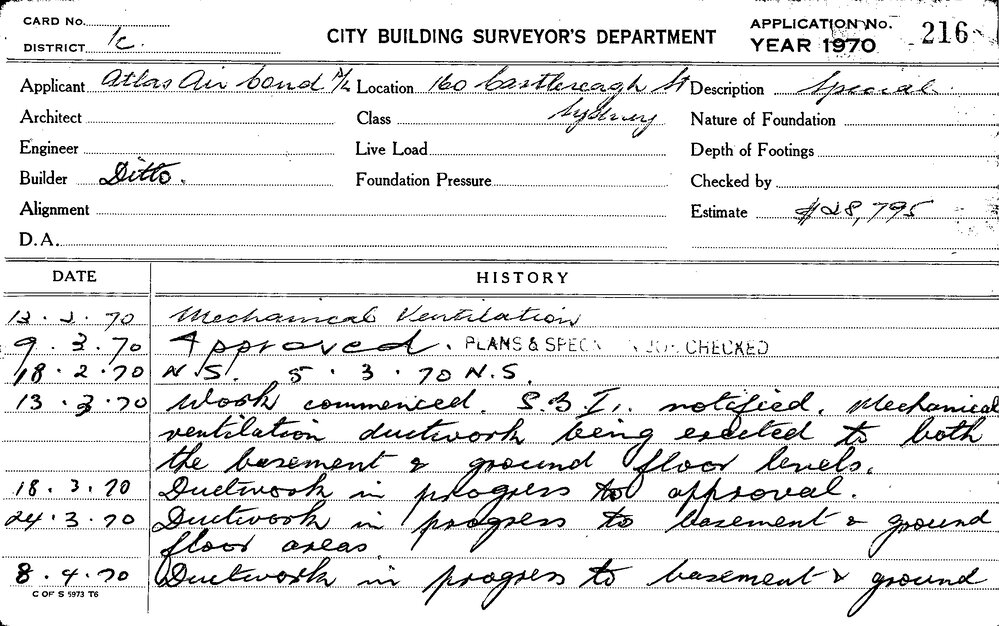 CARD No.
DISTRICT 1c.
CITY BUILDING SURVEYOR'S DEPARTMENT
APPLICATION No. 216
YEAR 1970
Applicant Atlas Air Cond P/L Location 160 Castlereagh St Description Special
Architect Class Sydney Nature of Foundation
Engineer Live Load Depth of Footings
Builder Ditto. Foundation Pressure Checked by
Alignment Estimate $28,795
D.A.
DATE HISTORY
70 Mechanical Ventilation
9.3.70 Approved. PLANS & SPECN CHECKED
18.2.70 N.S. 5.3.70 N.S.
13.3.70 Work commenced. S.B.I. notified. Mechanical
ventilation ductwork being erected to both
the basement & ground floor levels.
18.3.70 Ductwork in progress to approval.
24.3.70 Ductwork in progress to basement & ground
floor areas.
8.4.70 Ductwork in progress to basement & ground
C OF S 5973 T6